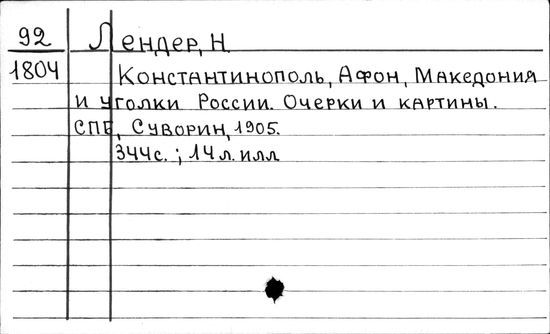 92 Лендер, Н
1804 Константинополь, Афон, Македония
и уголки России. Очерки и картины.
СПБ, Суворин, 1905.
344с. ; 14 л. илл